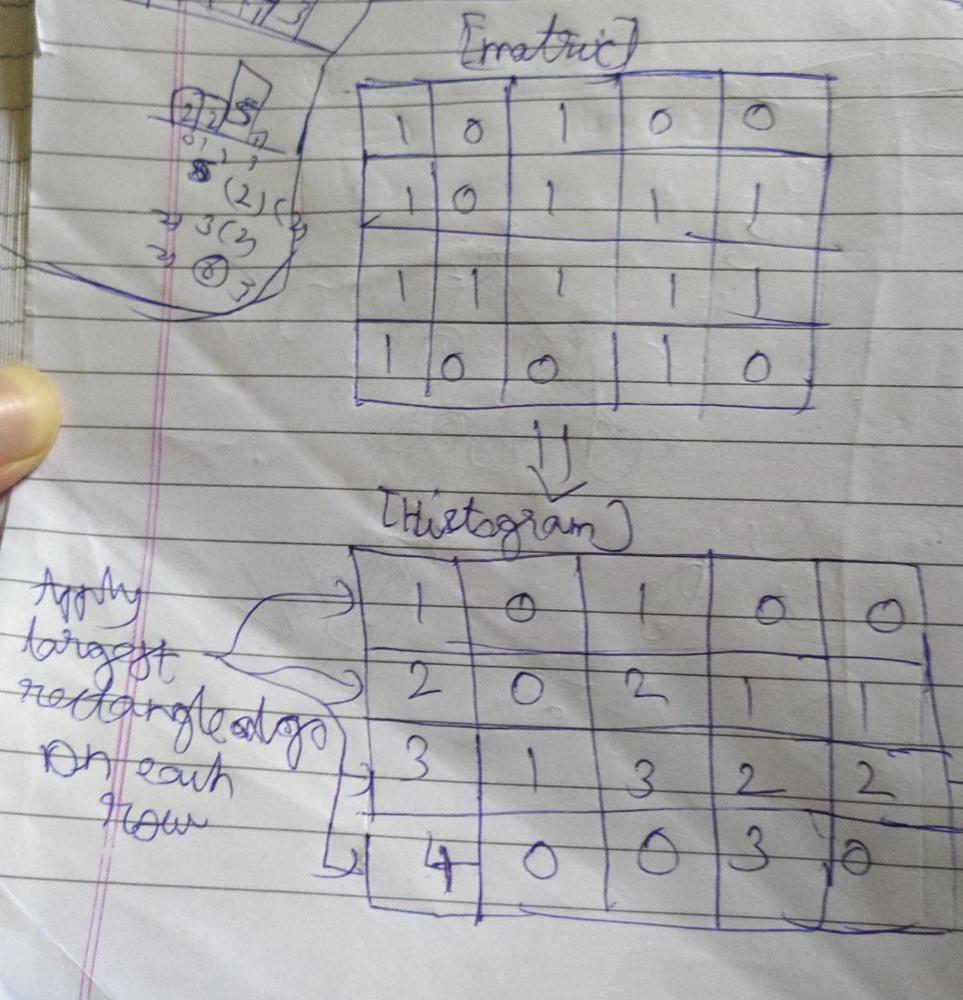 [matric]
1 0 1 0 0
1 0 1 1 1
1 1 1 1 1
1 0 0 1 0
[Histogram]
1 0 1 0 0
2 0 2 1 1
3 1 3 2 2
4 0 0 3 0
Apply
largest
rectangle algo
on each
row
2 2 5
(2)
3
3